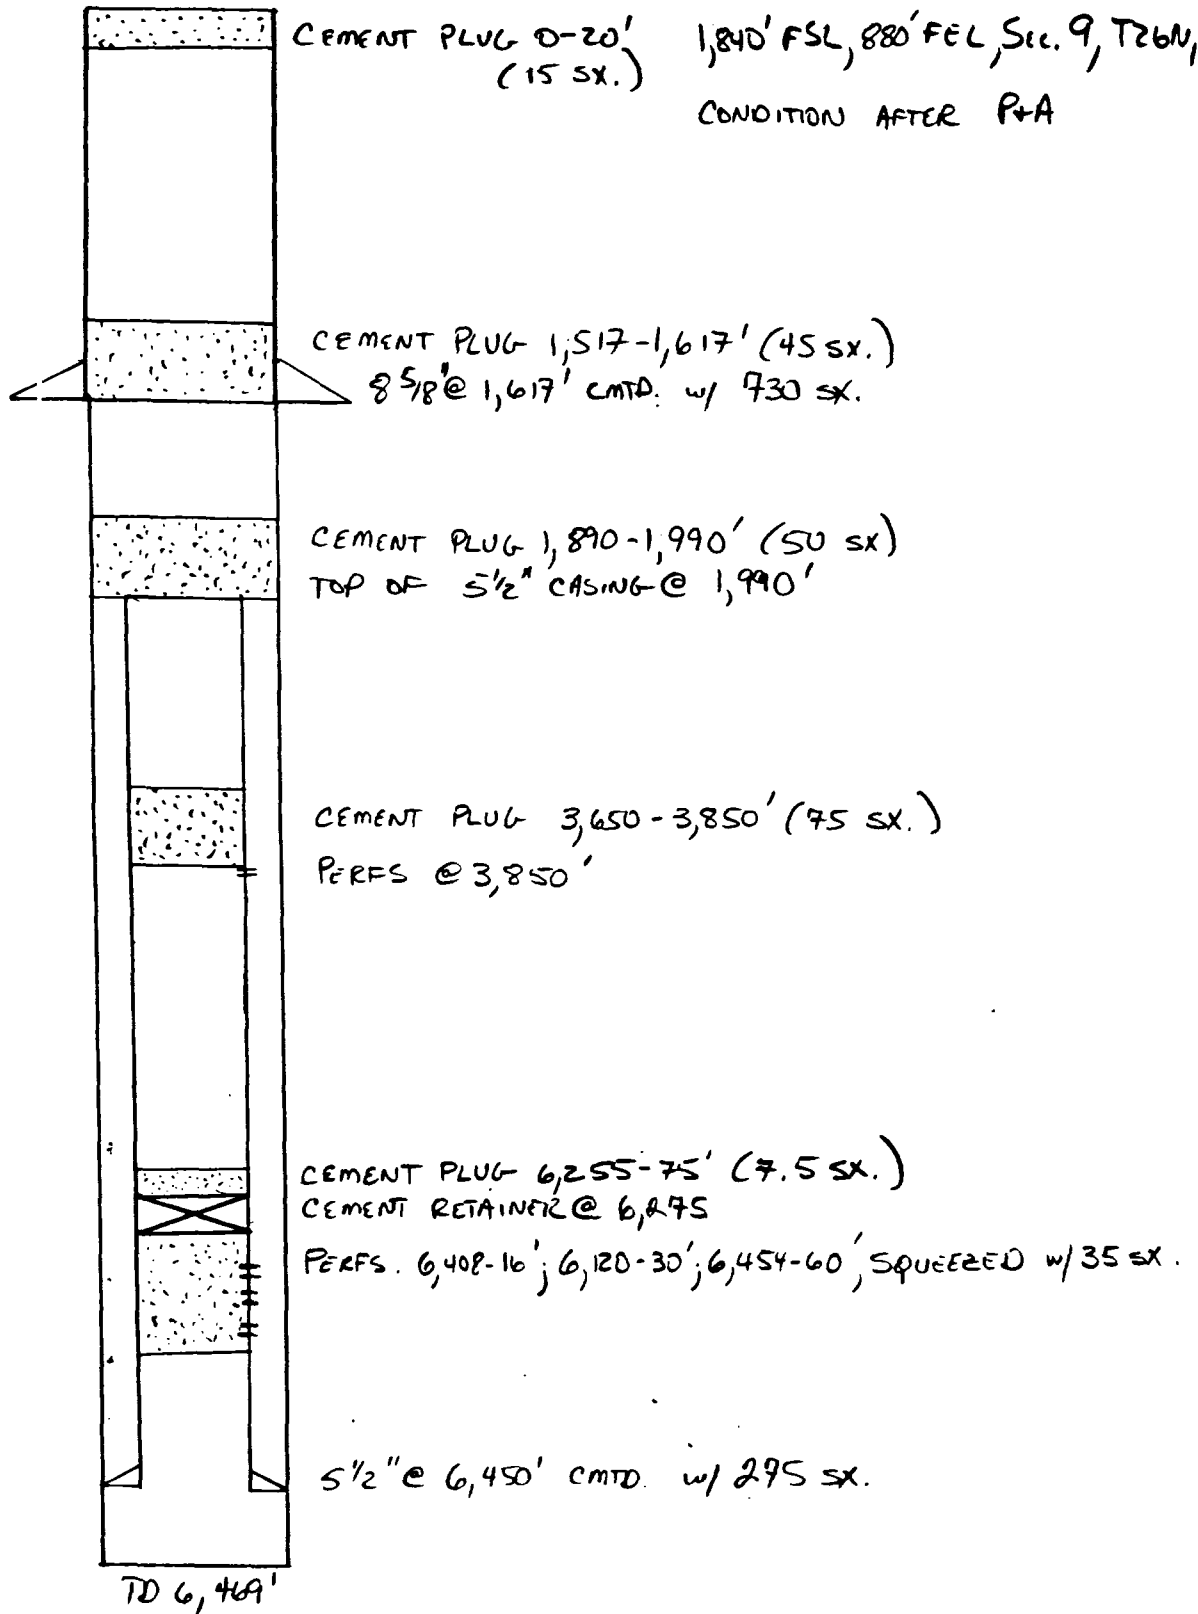 CEMENT PLUG 0-20'
(15 SX.)
1,840' FSL, 880' FEL, Sec. 9, T26N,
CONDITION AFTER P+A
CEMENT PLUG 1,517-1,617' (45 SX.)
8 5/8" @ 1,617' CMTD. w/ 730 SX.
CEMENT PLUG 1,890-1,990' (50 SX)
TOP OF 5 1/2" CASING @ 1,990'
CEMENT PLUG 3,650-3,850' (75 SX.)
PERFS @ 3,850'
CEMENT PLUG 6,255-75' (7.5 SX.)
CEMENT RETAINER @ 6,275
PERFS. 6,408-16'; 6,120-30'; 6,454-60', SQUEEZED w/ 35 SX.
5 1/2" @ 6,450' CMTD. w/ 275 SX.
TD 6,469'